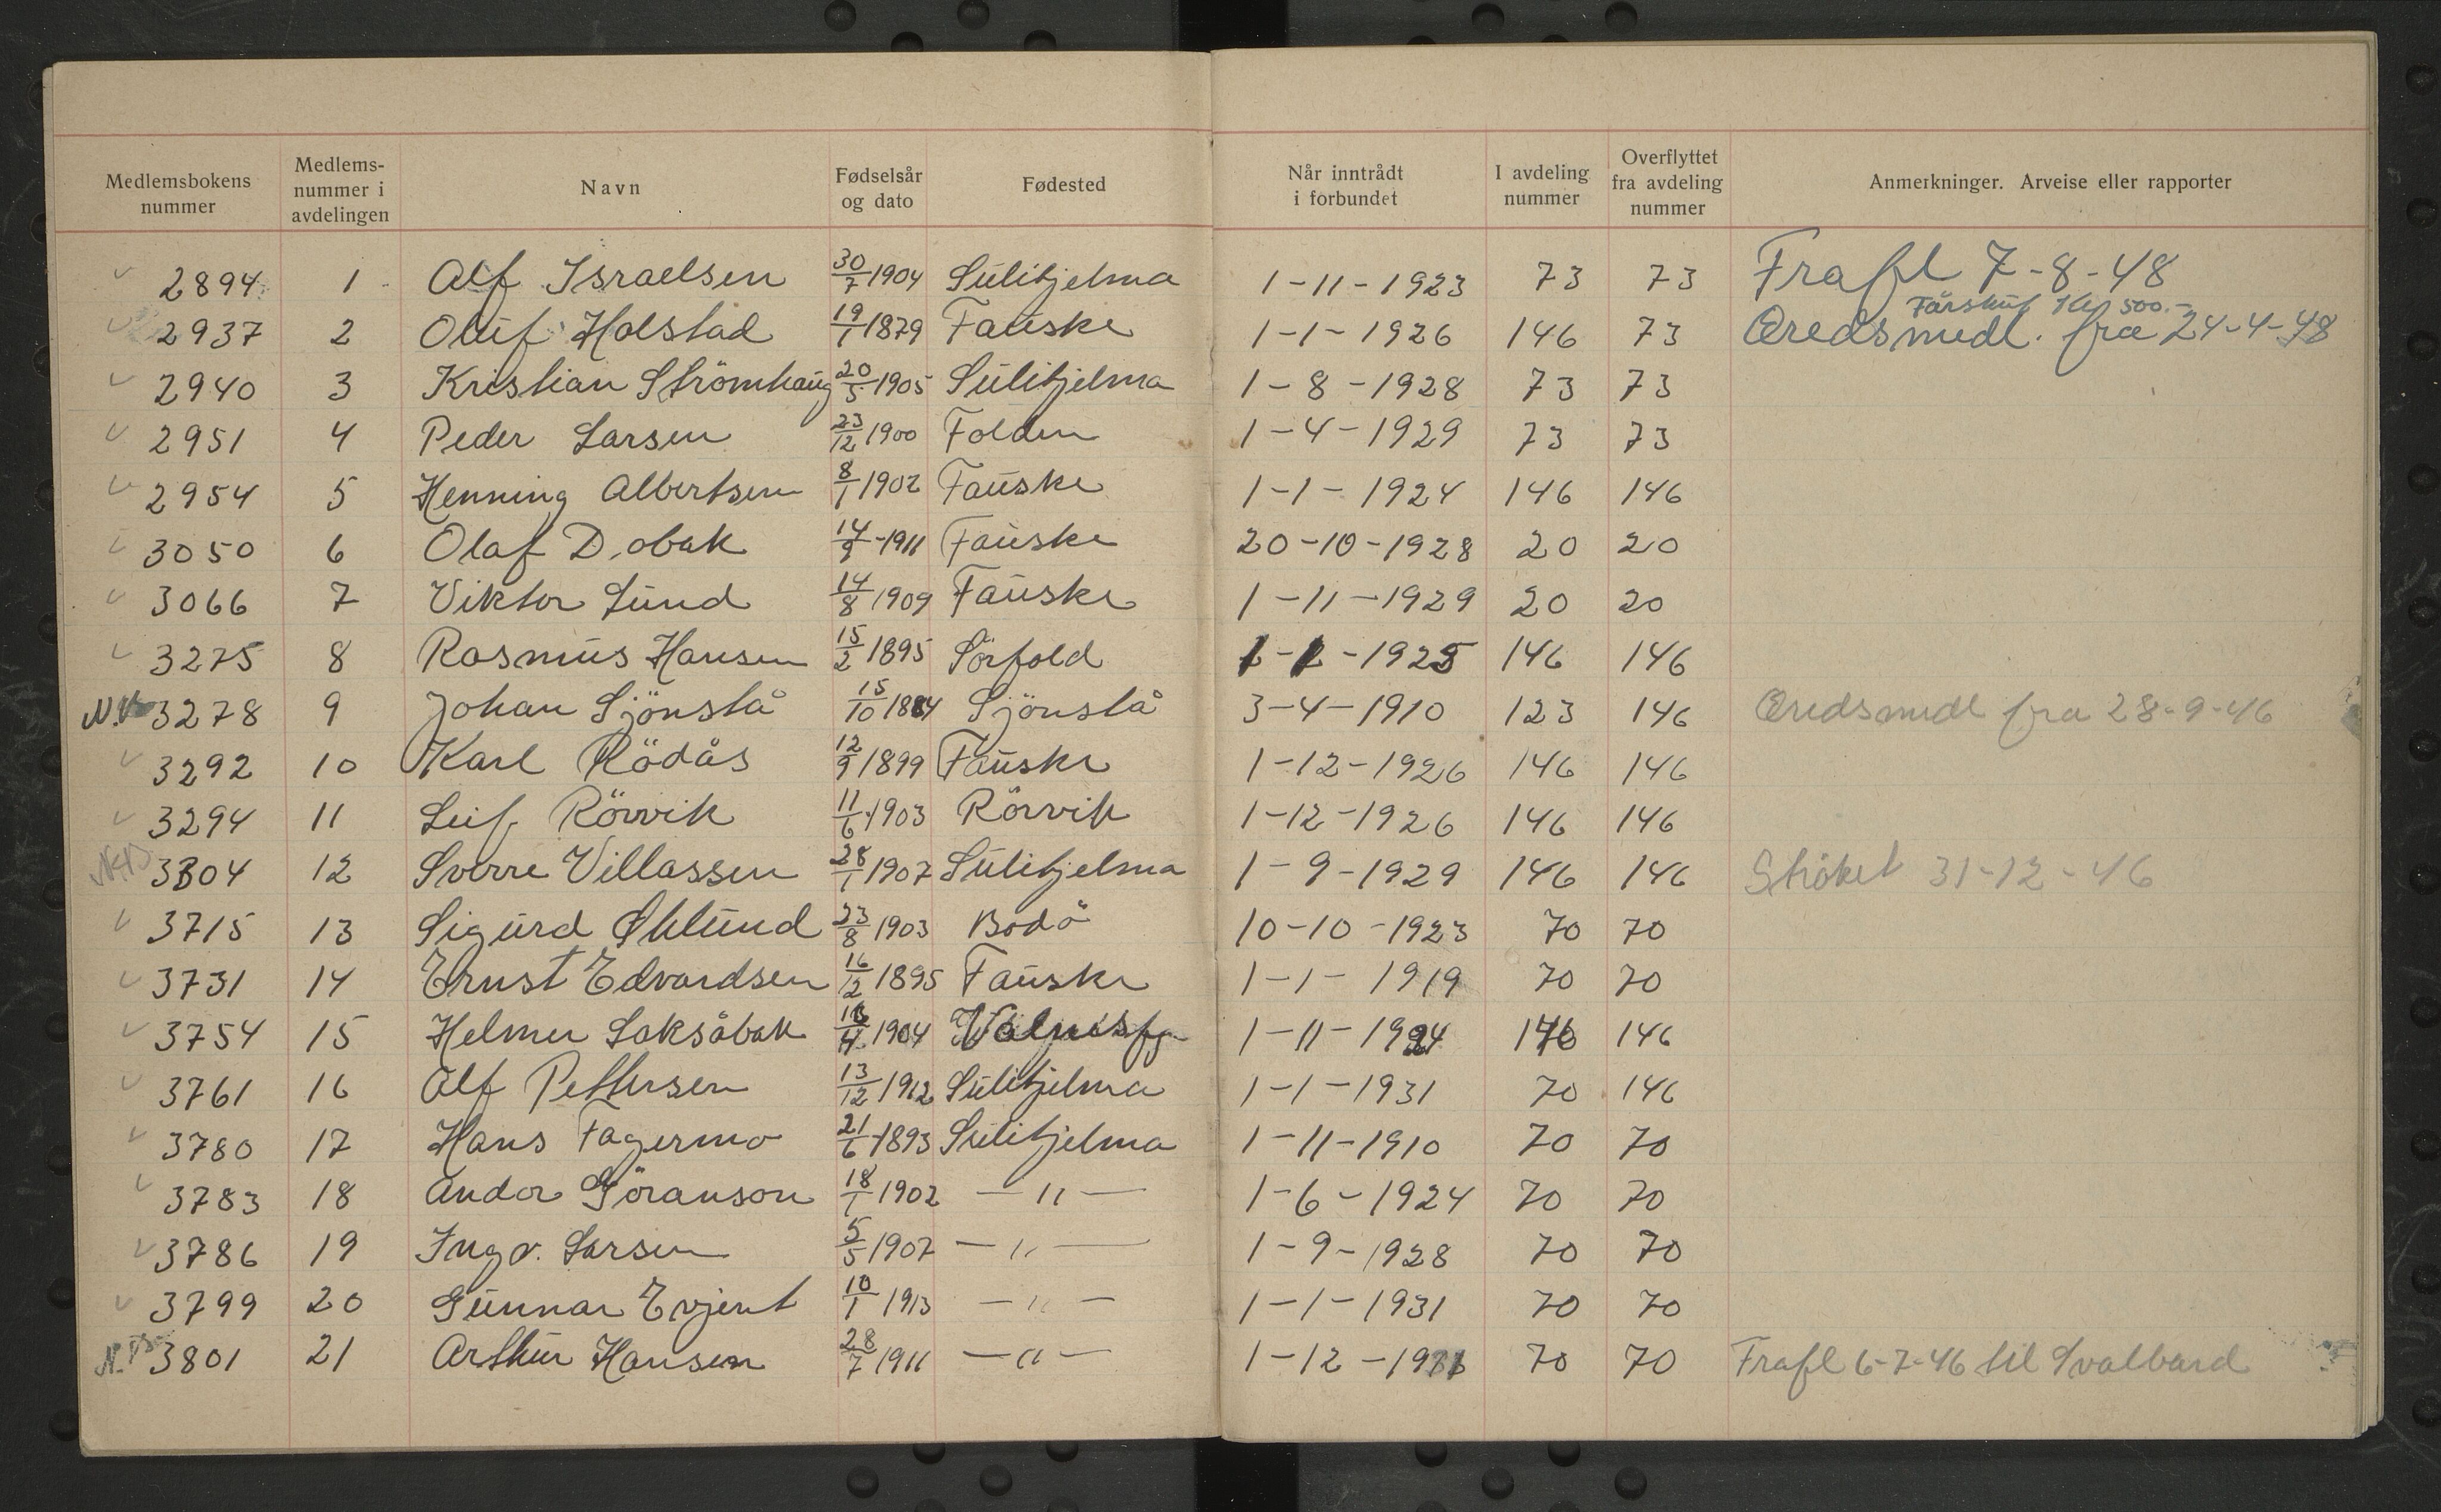 Medlemsbokens nummer | Medlems-nummer i avdelingen | Navn | Fødselsår og dato | Fødested | Når inntrådt i forbundet | I avdeling nummer | Overflyttet fra avdeling nummer | Anmerkninger. Arveise eller rapporter
2894 1 Alf Israelsen 30/7 1904 Sulitjelma 1-11-1923 73 73 Frafl 7-8-48
2937 2 Oluf Holstad 19/1 1879 Fauske 1-1-1926 146 73 Æredsmedl. fra 24-4-48
2940 3 Kristian Strömhaug 20/5 1905 Sulitjelma 1-8-1928 73 73
2951 4 Peder Larsen 23/12 1900 Folden 1-4-1929 73 73
2954 5 Henning Albertsen 8/1 1902 Fauske 1-1-1924 146 146
3050 6 Olaf D. obak 1911 Fauske 20-10-1928 20 20
3066 7 Viktor Lund 14/8 1909 Fauske 1-11-1929 20 20
3275 8 Rasmus Hansen 15/2 1895 Sörfold 1925 146 146
3278 9 Johan Sjönstå 15/10 1884 Sjönstå 3-4-1910 123 146 Æredsmedl fra 28-9-46
3292 10 Karl Rödås 12/9 1899 Fauske 1-12-1926 146 146
3294 11 Leif Rörvik 11/6 1903 Rörvik 1-12-1926 146 146
3304 12 Sverre Villassen 28/1 1907 Sulitjelma 1-9-1929 146 146 Ströket 31-12-46
3715 13 Sigurd Øhlund 23/8 1903 Bodö 10-10-1923 70 70
3731 14 Ernst Edvardsen 16/12 1895 Fauske 1-1-1919 70 70
3754 15 Helmer Laksåbak 1904 Valnesfj 1-11-1924 146 146
3761 16 Alf Pettersen 13/12 1912 Sulitjelma 1-1-1931 70 146
3780 17 Hans Fagermo 21/6 1893 Sulitjelma 1-11-1910 70 70
3783 18 Andor Göranson 18/1 1902 —"— 1-6-1924 70 70
3786 19 Ingv. Larsen 5/5 1907 —"— 1-9-1928 70 70
3799 20 Gunnar Evjent 10/1 1913 —"— 1-1-1931 70 70
3801 21 Arthur Hansen 28/7 1911 —"— 1-12-1931 70 70 Frafl 6-7-46 til Svalbard